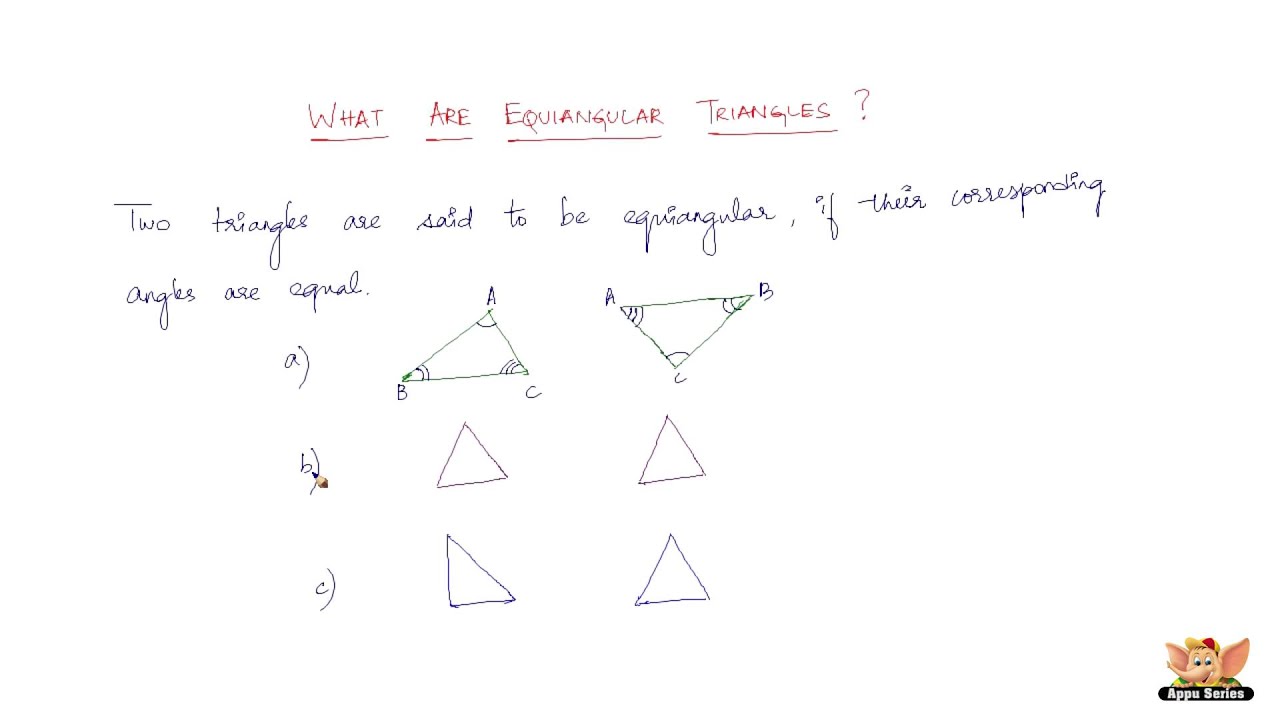 WHAT ARE EQUIANGULAR TRIANGLES ?
Two triangles are said to be equiangular, if their corresponding
angles are equal.
a)
A
B
C
A
B
C
b)
c)
Appu Series